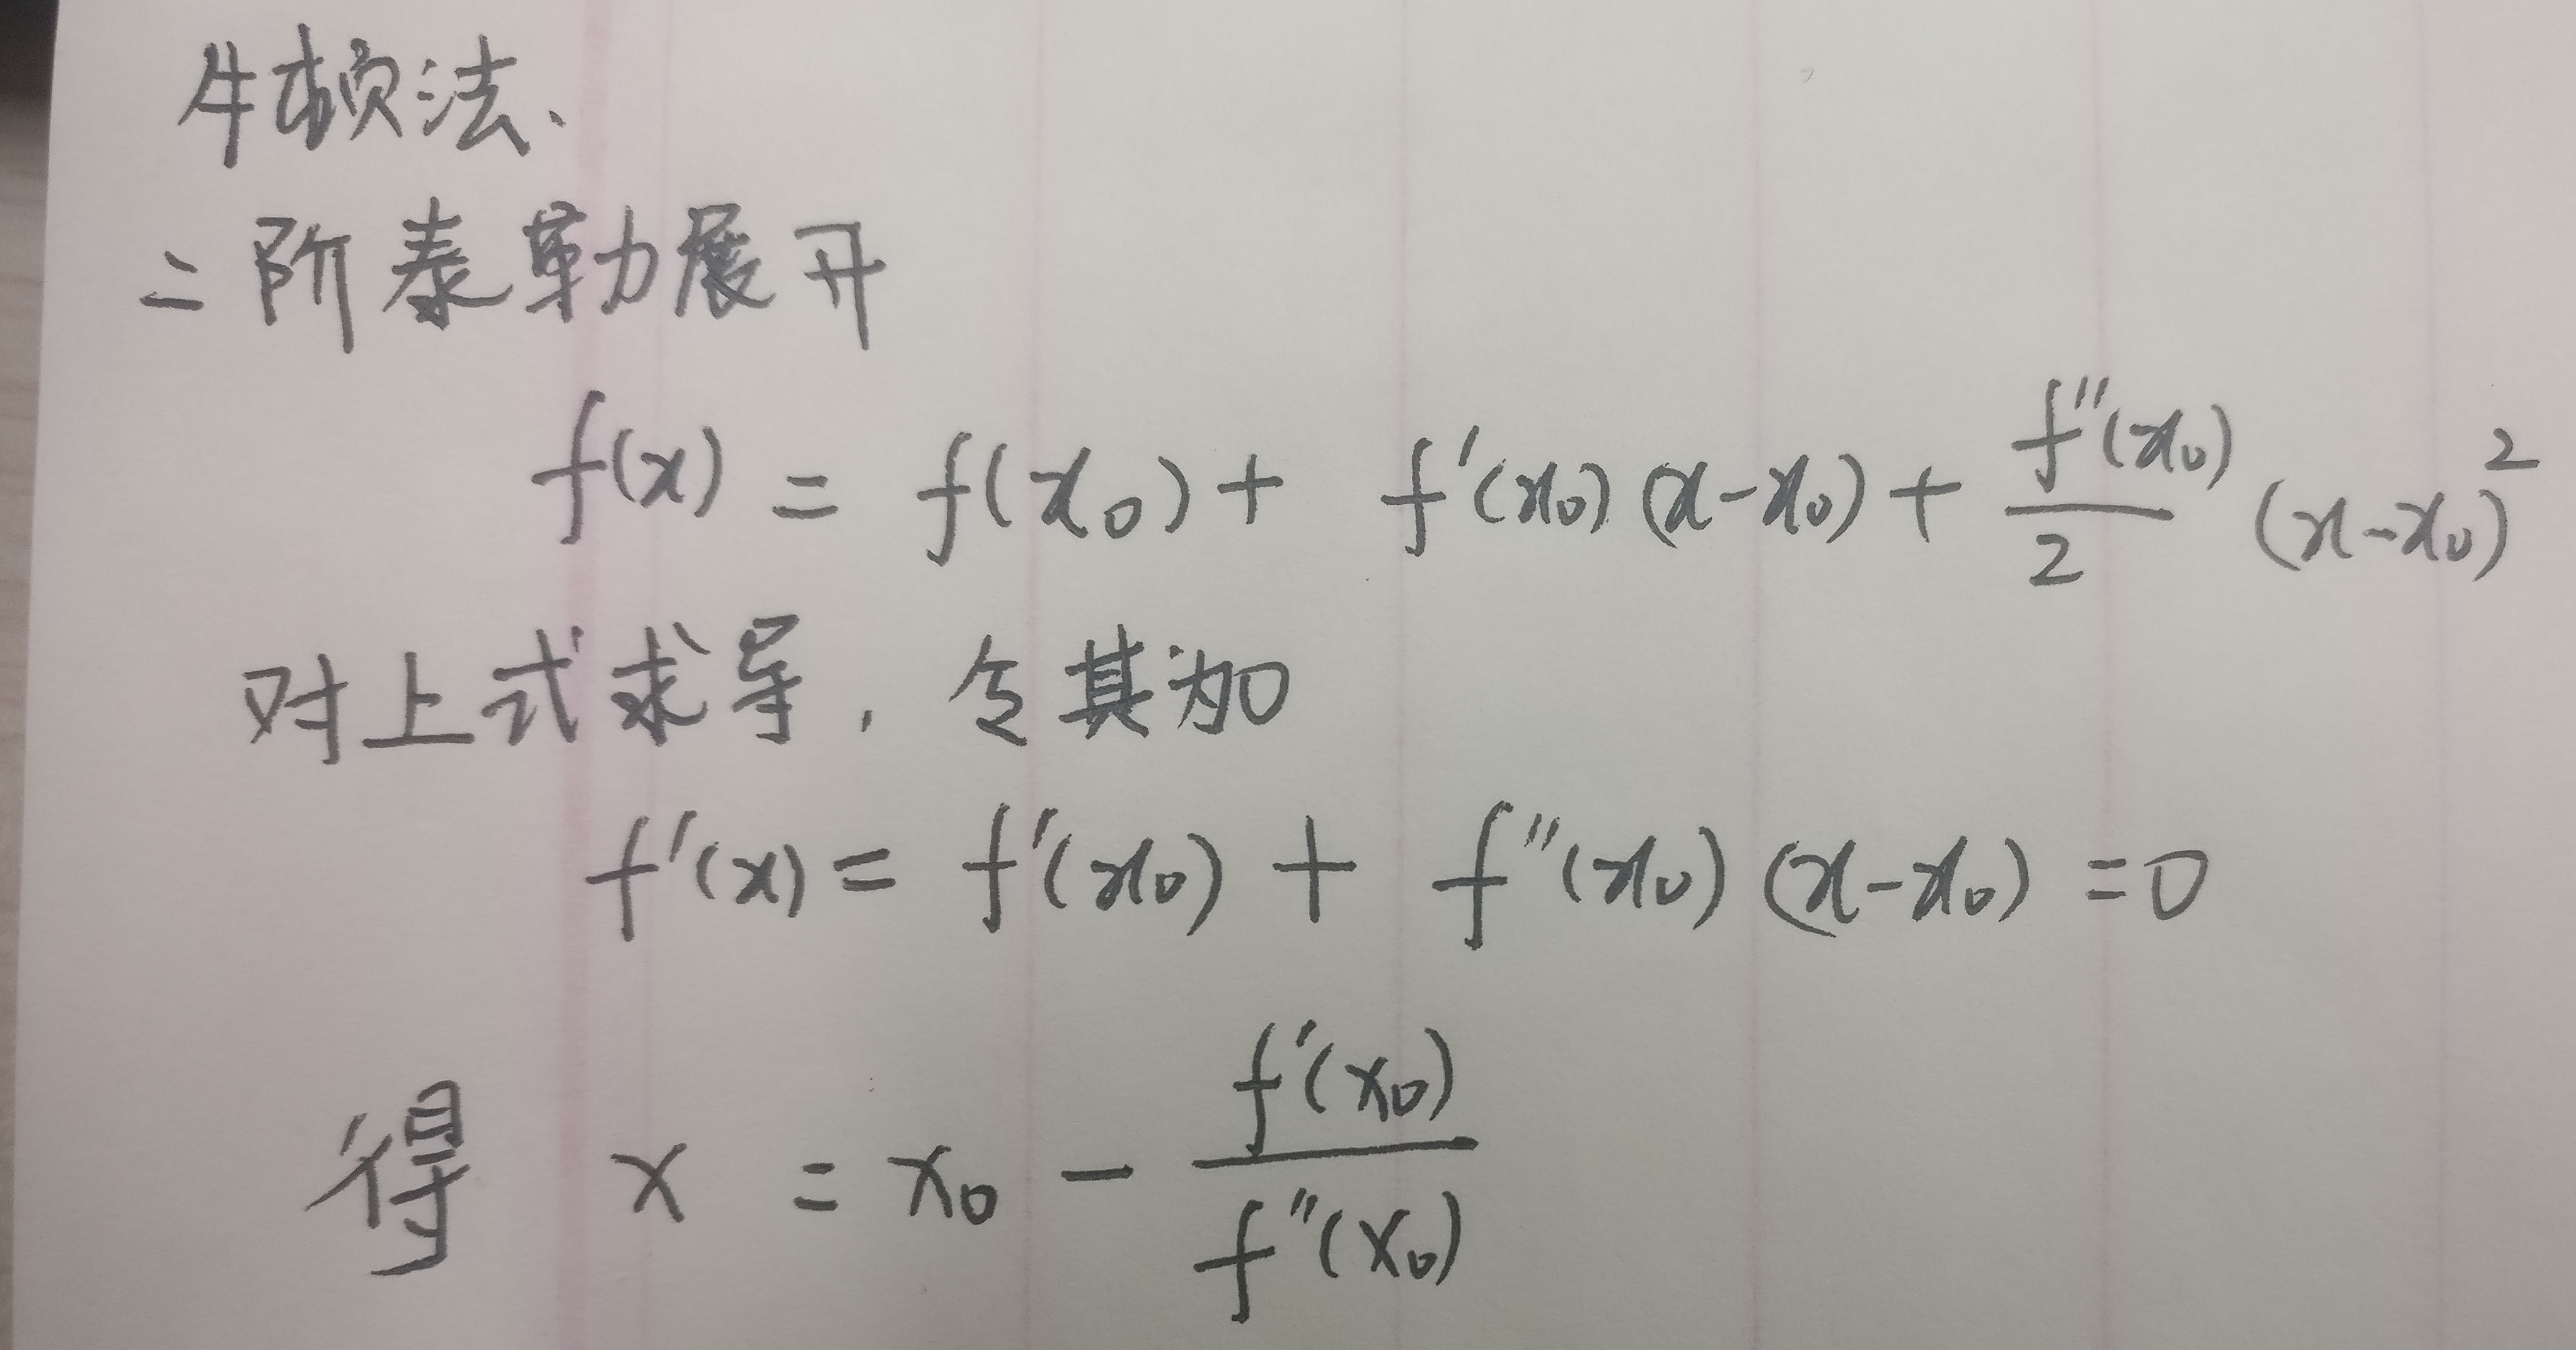 牛顿法、
二阶泰勒展开
f(x) = f(x₀) + f'(x₀)(x-x₀) + \frac{f''(x₀)}{2}(x-x₀)²
对上式求导, 令其为0
f'(x) = f'(x₀) + f''(x₀)(x-x₀) = 0
得 x = x₀ - \frac{f'(x₀)}{f''(x₀)}